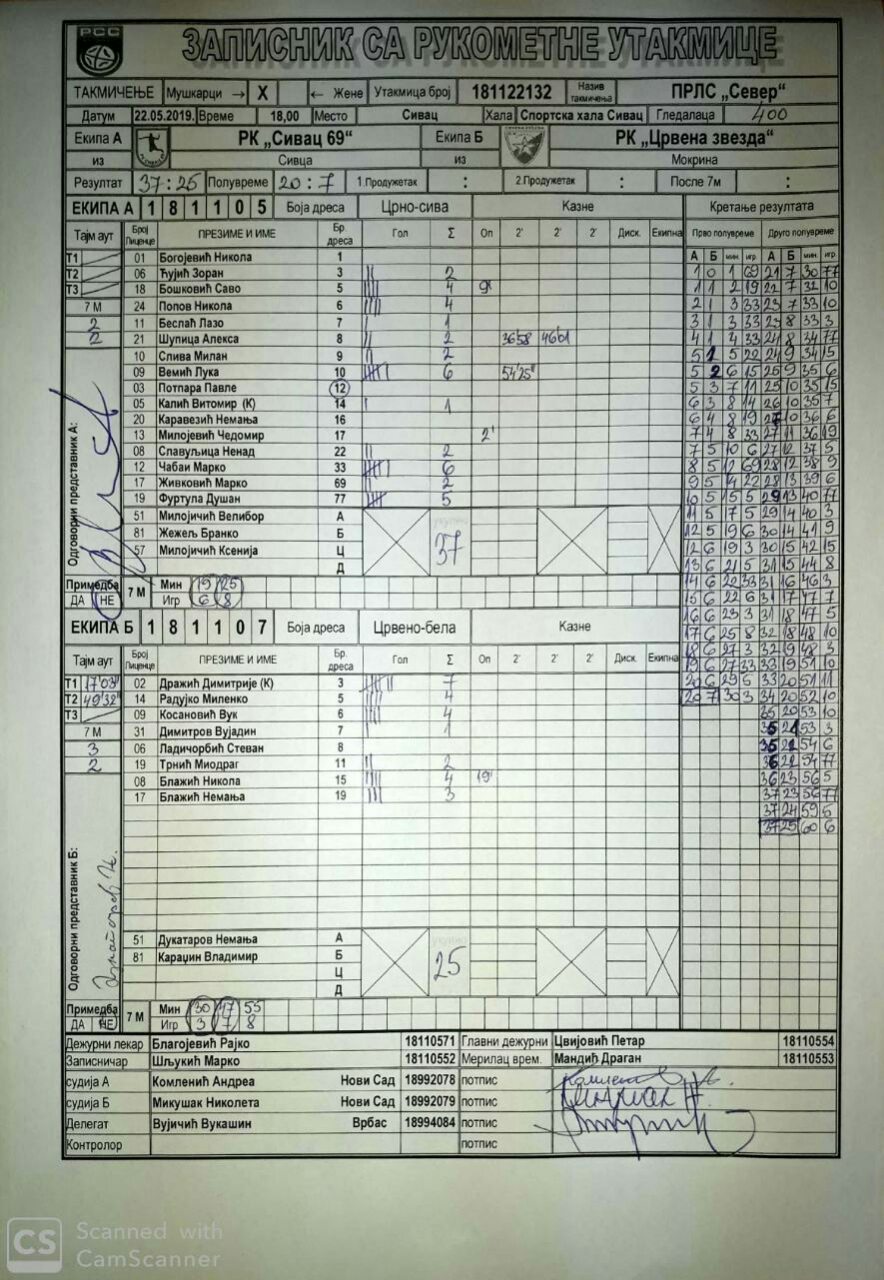 РСС
ЗАПИСНИК СА РУКОМЕТНЕ УТАКМИЦЕ
ТАКМИЧЕЊЕ Мушкарци → X ← Жене Утакмица број 181122132 Назив такмичења ПРЛС „Север“
Датум 22.05.2019. Време 18,00 Место Сивац Хала Спортска хала Сивац Гледалаца 400
Екипа А РК „Сивац 69“ Екипа Б РК „Црвена звезда“
из Сивца из Мокрина
Резултат 37:25 Полувреме 20:7 1.Продужетак : 2.Продужетак : После 7м :
ЕКИПА А 1 8 1 1 0 5 Боја дреса Црно-сива Казне Кретање резултата
Тајм аут Број Лиценце ПРЕЗИМЕ И ИМЕ Бр. дреса Гол Σ Оп 2' 2' 2' Диск. Екипна Прво полувреме Друго полувреме
А Б мин. игр. А Б мин. игр.
Т1 01 Богојевић Никола 1
Т2 06 Ћујић Зоран 3 2 1 0 1 69 21 7 30 77
Т3 18 Бошковић Саво 5 4 9' 1 1 2 19 22 7 32 10
7 М 24 Попов Никола 6 4 2 1 3 33 23 7 33 10
2 11 Беслаћ Лазо 7 1 3 1 3 33 23 8 33 3
2 21 Шупица Алекса 8 2 36'58 46'01 4 1 4 33 24 8 34 77
10 Слива Милан 9 2 5 1 5 22 24 9 34 15
09 Вемић Лука 10 6 54'25'' 5 2 6 15 25 9 35 6
03 Потпара Павле 12 5 3 7 11 25 10 35 15
05 Калић Витомир (К) 14 1 6 3 8 14 26 10 35 7
20 Каравезић Немања 16 6 4 8 19 27 10 36 6
13 Милојевић Чедомир 17 2' 7 4 8 33 27 11 36 19
08 Славуљица Ненад 22 2 7 5 10 6 27 12 37 5
12 Чабаи Марко 33 6 8 5 12 69 28 12 38 9
17 Живковић Марко 69 2 9 5 14 22 28 13 39 6
19 Фуртула Душан 77 5 10 5 15 5 29 13 40 77
51 Милојичић Велибор А 11 5 17 5 29 14 40 3
81 Жежељ Бранко Б 37 12 5 19 6 30 14 41 9
57 Милојичић Ксенија Ц 12 6 19 3 30 15 42 15
Д 13 6 21 5 31 15 44 8
Одговорни представник А:
Примедба 7 М Мин 19 25 14 6 22 33 31 16 46 3
ДА НЕ Игр 6 8 15 6 22 6 31 17 47 7
16 6 23 3 31 18 47 5
ЕКИПА Б 1 8 1 1 0 7 Боја дреса Црвено-бела Казне 17 6 25 8 32 18 48 10
Тајм аут Број Лиценце ПРЕЗИМЕ И ИМЕ Бр. дреса Гол Σ Оп 2' 2' 2' Диск. Екипна 18 6 27 3 32 19 48 3
19 6 27 33 33 19 51 10
Т1 17'03'' 02 Дражић Димитрије (К) 3 7 20 6 29 5 33 20 51 11
Т2 49'32'' 14 Радујко Миленко 5 4 20 7 30 3 34 20 52 10
Т3 09 Косановић Вук 6 4 35 20 53 10
7 М 31 Димитров Вујадин 7 1 35 21 53 3
3 06 Ладичорбић Стеван 8 54 6
2 19 Трнић Миодраг 11 2 54 77
08 Блажић Никола 15 4 19' 36 23 56 5
17 Блажић Немања 19 3 37 23 56 77
37 24 59 6
37 25 60 6
Одговорни представник Б:
51 Дукатаров Немања А
81 Караџин Владимир Б 25
Ц
Д
Примедба 7 М Мин 30 17 55
ДА НЕ Игр 3 7 8
Дежурни лекар Благојевић Рајко 18110571 Главни дежурни Цвијовић Петар 18110554
Записничар Шљукић Марко 18110552 Мерилац врем. Мандић Драган 18110553
судија А Комленић Андреа Нови Сад 18992078 потпис
судија Б Микушак Николета Нови Сад 18992079 потпис
Делегат Вујичић Вукашин Врбас 18994084 потпис
Контролор потпис
CS Scanned with
CamScanner